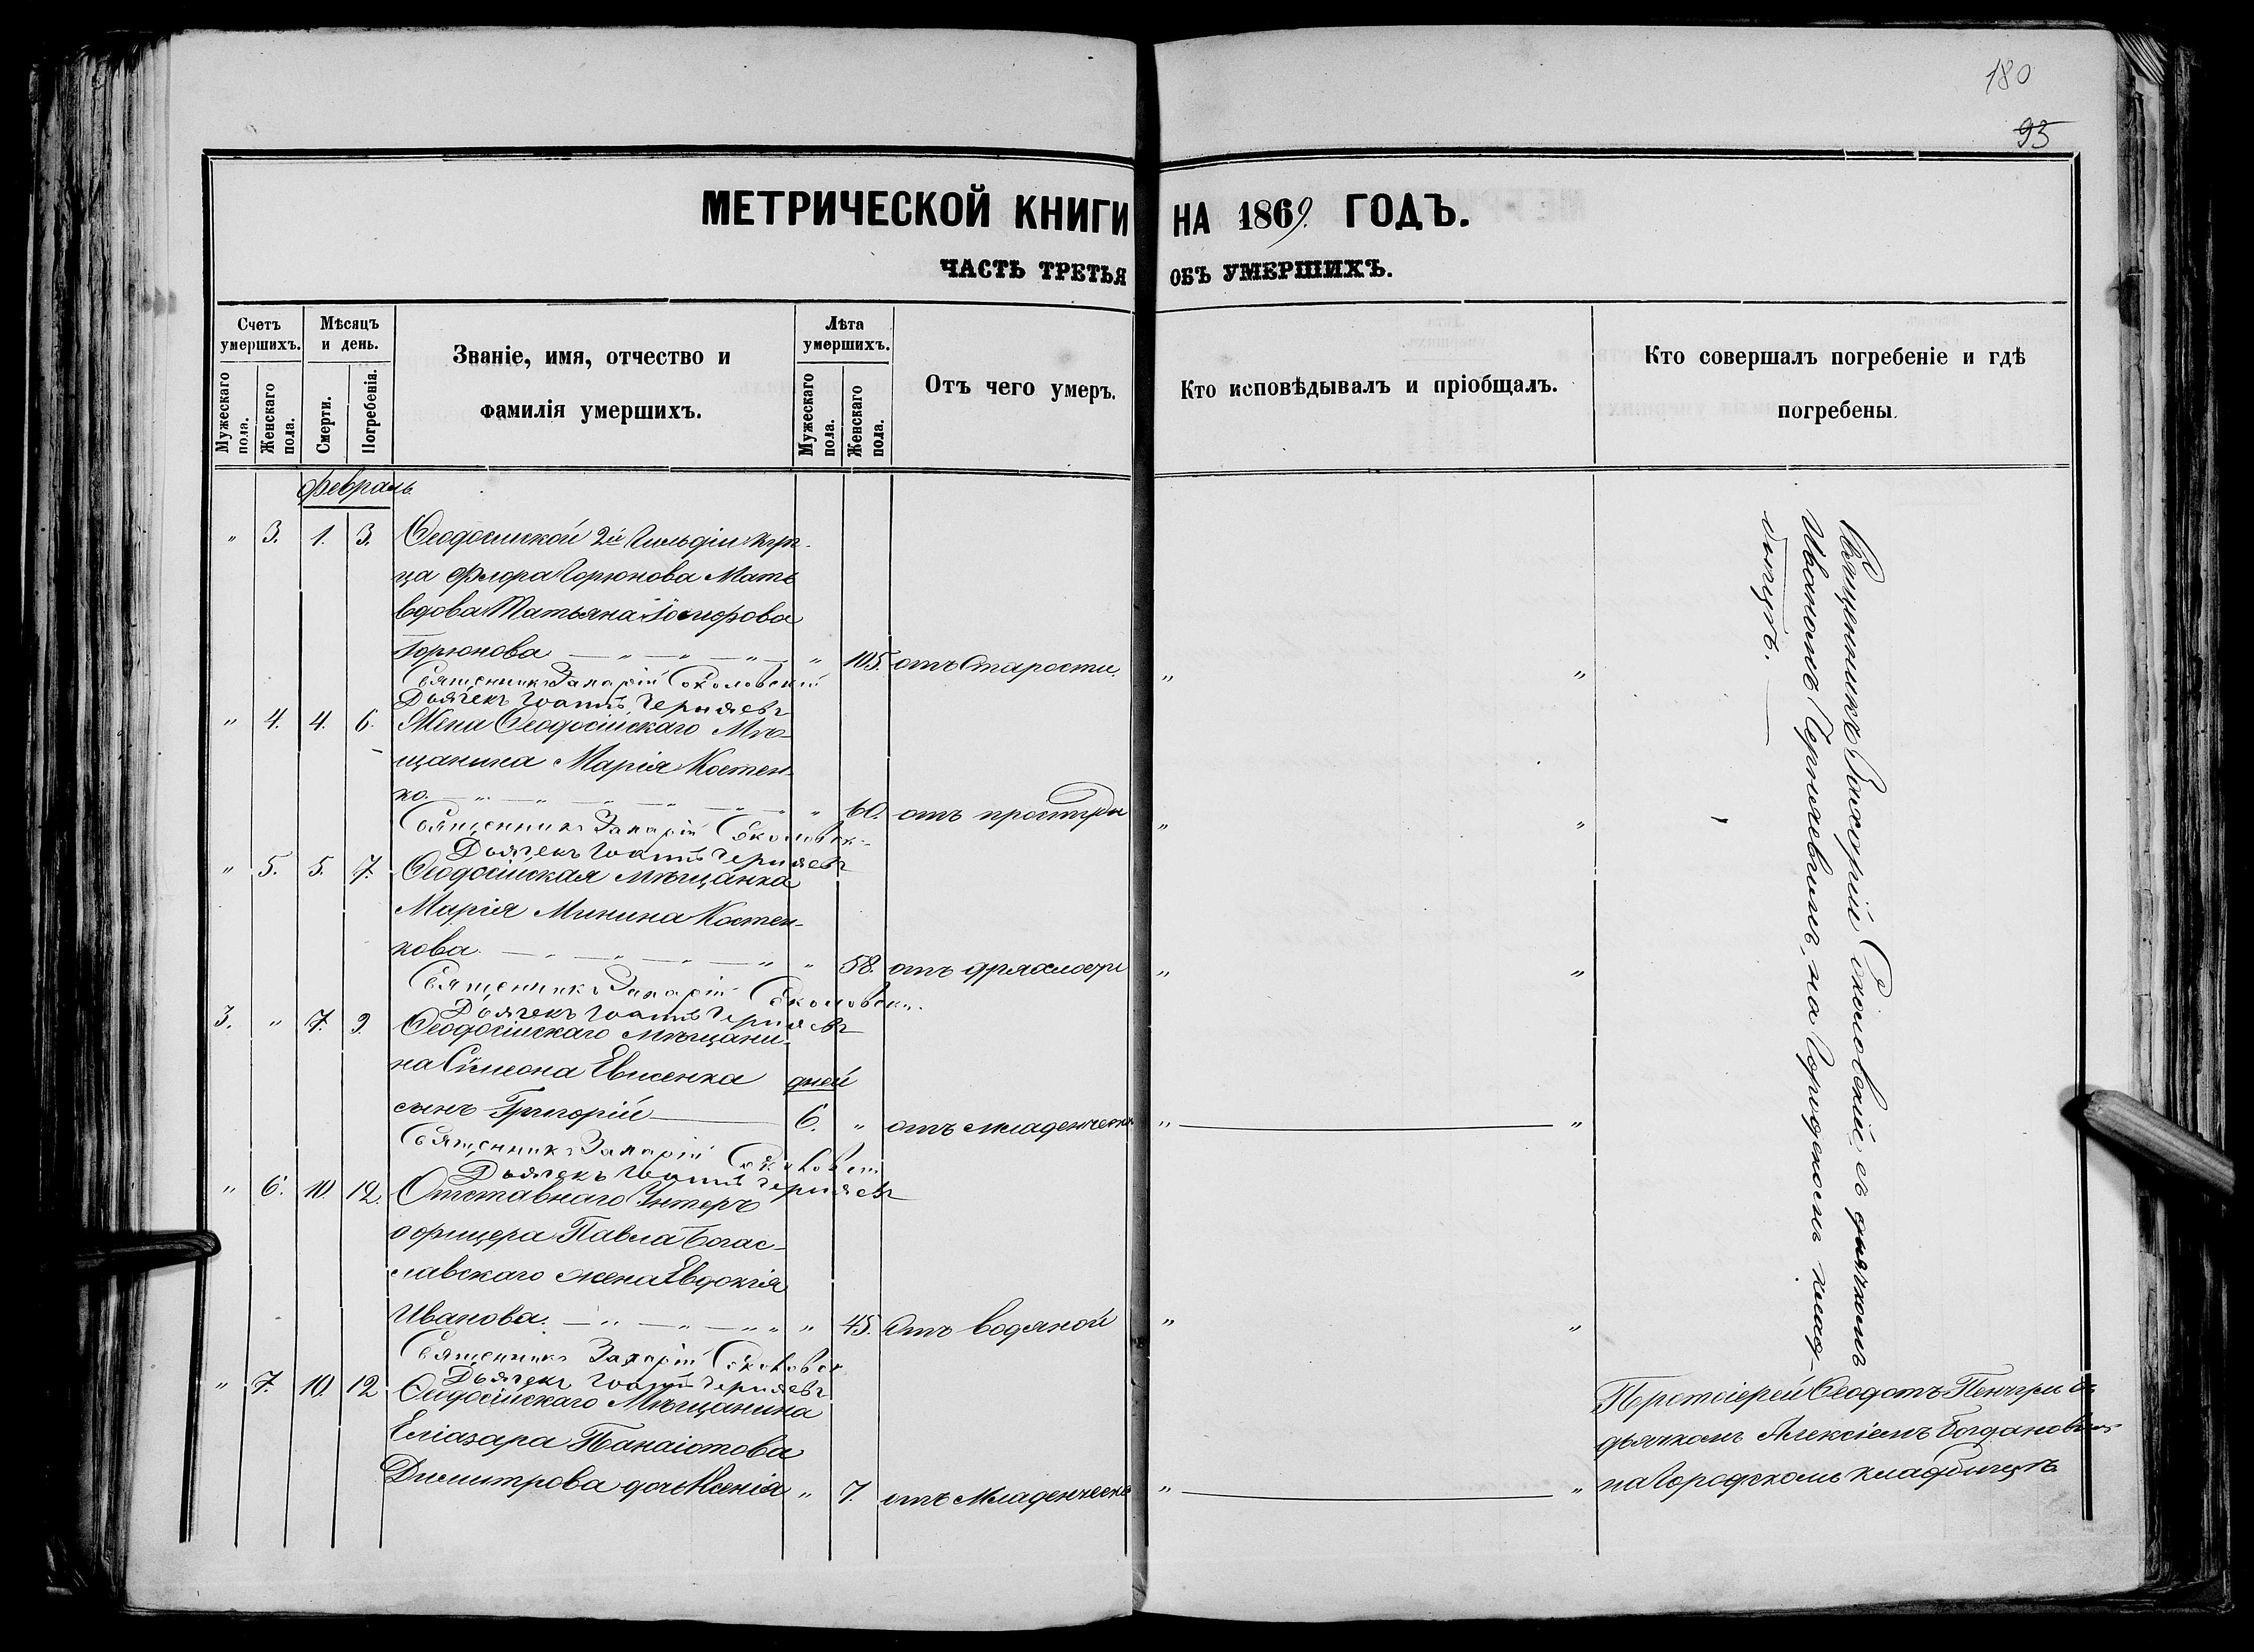 180
93
МЕТРИЧЕСКОЙ КНИГИ НА 1869. ГОДЪ.
ЧАСТЬ ТРЕТЬЯ ОБЪ УМЕРШИХЪ.
Счетъ умершихъ.
Мужескаго пола.
Женскаго пола.
Мѣсяцъ и день.
Смерти.
Погребенія.
Званіе, имя, отчество и
фамилія умершихъ.
Лѣта умершихъ.
Мужескаго пола.
Женскаго пола.
Отъ чего умеръ.
Кто исповѣдывалъ и пріобщалъ.
Кто совершалъ погребеніе и гдѣ
погребены.
февраль
" 3. 1. 3. Ѳеодосійской 2й Гильдіи Куп-
ца Флора Горюнова Мать
вдова Татьяна Іосифова
Горюнова — " — " — " — " 105. отъ Старости. " "
Священникъ Захарій Соколовскій
Дьячекъ Іоаннъ Черняевъ
" 4. 4. 6. Жена Ѳеодосійскаго Мѣ-
щанина Марія Костен-
ко. — " — " — " — " 60. отъ простуды " "
Священникъ Захарій Соколовск
Дьячекъ Іоаннъ Черняевъ
" 5. 5. 7. Ѳеодосійская мѣщанка
Марія Минина Костен-
кова. — " — " — " — " " 58. отъ дряхлости " "
Священникъ Захарій Соколовски
Дьячекъ Іоаннъ Черняевъ
3. " 7. 9. Ѳеодосійскаго мѣщани-
на Сѵмеона Евсенка дней
сынъ Григорій — 6. " отъ младенческ " — "
Священникъ Захарій
Дьячекъ Іоаннъ Черняевъ
" 6. 10. 12. Отставнаго Унтеръ
офицера Павла Богас-
лавскаго жена Евдокія
Иванова. — " — " — " " " 45. Отъ водяной " "
Священникъ Захарій Соколовск
Дьячекъ Іоаннъ Черняевъ
" 7. 10. 12 Ѳеодосійскаго Мѣщанина
Еліазара Панаіотова
Димитрова дочь Ксенія " 7. отъ Младенческо " — "
Священникъ Захарій Соколовскій съ дьячкомъ
Иваномъ Черняевымъ, на Городскомъ клад-
бищѣ. —
Протоіерей Ѳеодотъ съ
дьячкомъ Алексіемъ Богдановымъ
на Городскомъ кладбищѣ.